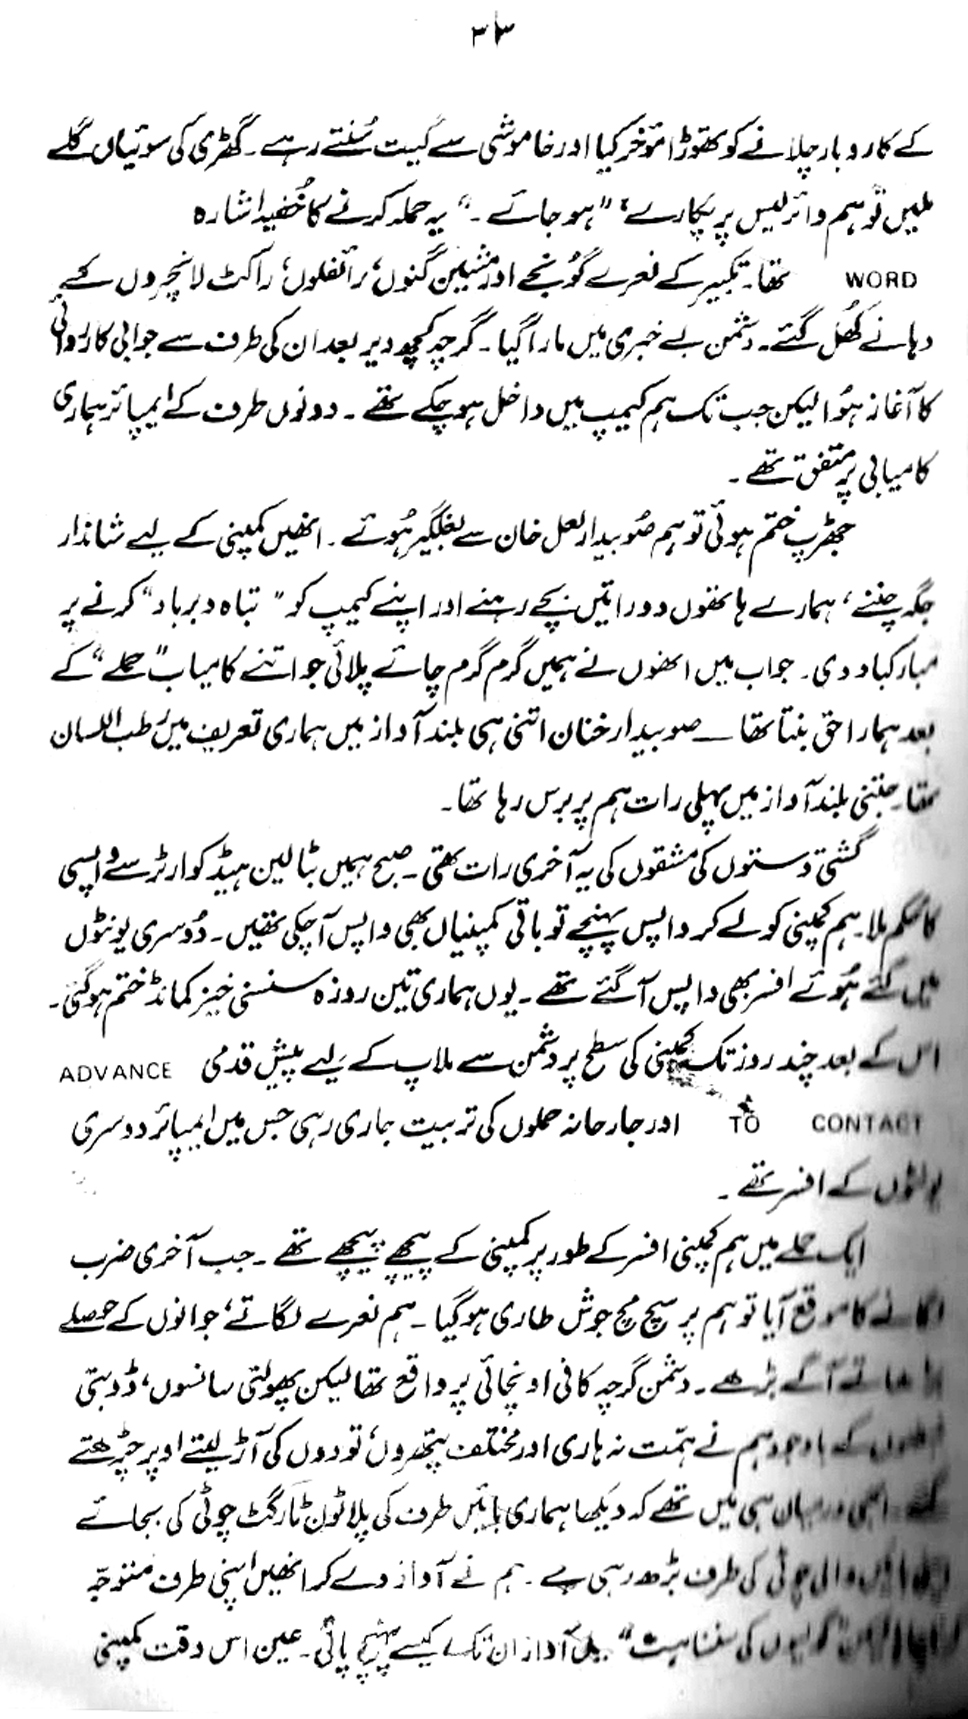 ۳۳
کے کاروبار چلانے کو تھوڑا مؤخر کیا اور خاموشی سے گیت سُنتے رہے۔ گھڑی کی سوئیاں گلے
ملیں تو ہم وائرلیس پر پکارے، "ہو جائے۔" یہ حملہ کرنے کا خُفیہ اشارہ
WORD تھا۔ تکبیر کے نعرے گونجے اور مشین گنوں، رائفلوں، راکٹ لانچروں کے
دہانے کُھل گئے۔ دشمن بے خبری میں مارا گیا۔ گرچہ کچھ دیر بعد ان کی طرف سے جوابی کاروائی
کا آغاز ہُوا لیکن جب تک ہم کیمپ میں داخل ہو چکے تھے۔ دونوں طرف کے ایمپائر ہماری
کامیابی پر متفق تھے۔
جھڑپ ختم ہوئی تو ہم صُوبیدار لعل خان سے بغلگیر ہُوئے۔ انھیں کمپنی کے لیے شاندار
جگہ چننے، ہمارے ہاتھوں دو راتیں بچے رہنے اور اپنے کیمپ کو "تباہ و برباد" کرنے پر
مبارکباد دی۔ جواب میں انھوں نے ہمیں گرم گرم چائے پلائی جو اتنے کامیاب "حملے" کے
بعد ہمارا حق بنتا تھا ــ صوبیدار خان اتنی ہی بلند آواز میں ہماری تعریف میں رطب اللسان
تھا۔ جتنی بلند آواز میں پہلی رات ہم پر برس رہا تھا۔
گشتی دستوں کی مشقوں کی یہ آخری رات تھی۔ صبح ہمیں بٹالین ہیڈ کوارٹر سے واپسی
کا حُکم ملا۔ ہم کمپنی کو لے کر واپس پہنچے تو باقی کمپنیاں بھی واپس آ چکی تھیں۔ دُوسری یونٹوں
میں گئے ہُوئے افسر بھی واپس آ گئے تھے۔ یوں ہماری تین روزہ سنسنی خیز کمانڈ ختم ہو گئی۔
اس کے بعد چند روز تک کمپنی کی سطح پر دشمن سے ملاپ کے لیے پیش قدمی ADVANCE
TO CONTACT اور جارحانہ حملوں کی تربیت جاری رہی جس میں ایمپائر دوسری
یونٹوں کے افسر تھے۔
ایک حملے میں ہم کمپنی افسر کے طور پر کمپنی کے پیچھے پیچھے تھے۔ جب آخری ضرب
لگانے کا موقع آیا تو ہم پر سچ مچ جوش طاری ہو گیا۔ ہم نعرے لگاتے، جوانوں کے حوصلے
بڑھاتے آگے بڑھے۔ دشمن گرچہ کافی اونچائی پر واقع تھا لیکن پھولتی سانسوں، ڈوبتی
کے باوجود ہم نے ہمّت نہ ہاری اور مختلف پتھروں، تودوں کی آڑ لیتے اوپر چڑھتے
گئے۔ ابھی درمیان ہی میں تھے کہ دیکھا ہماری بائیں طرف کی پلاٹون ٹارگٹ چوٹی کی بجائے
والی چوٹی کی طرف بڑھ رہی ہے۔ ہم نے آواز دے کر انھیں اپنی طرف متوجّہ
گولیوں کی سنسناہٹ" میں آواز ان تک کیسے پہنچ پاتی۔ عین اس وقت کمپنی